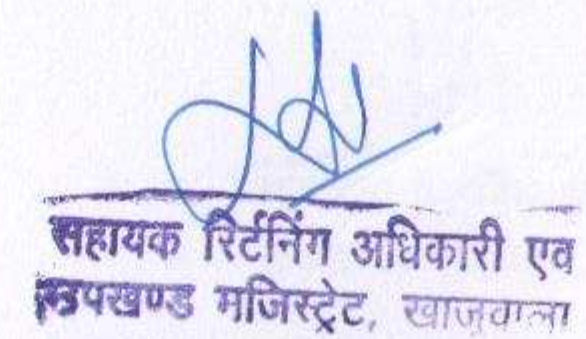 सहायक रिर्टनिंग अधिकारी एव
उपखण्ड मजिस्ट्रेट, खाजुवाला